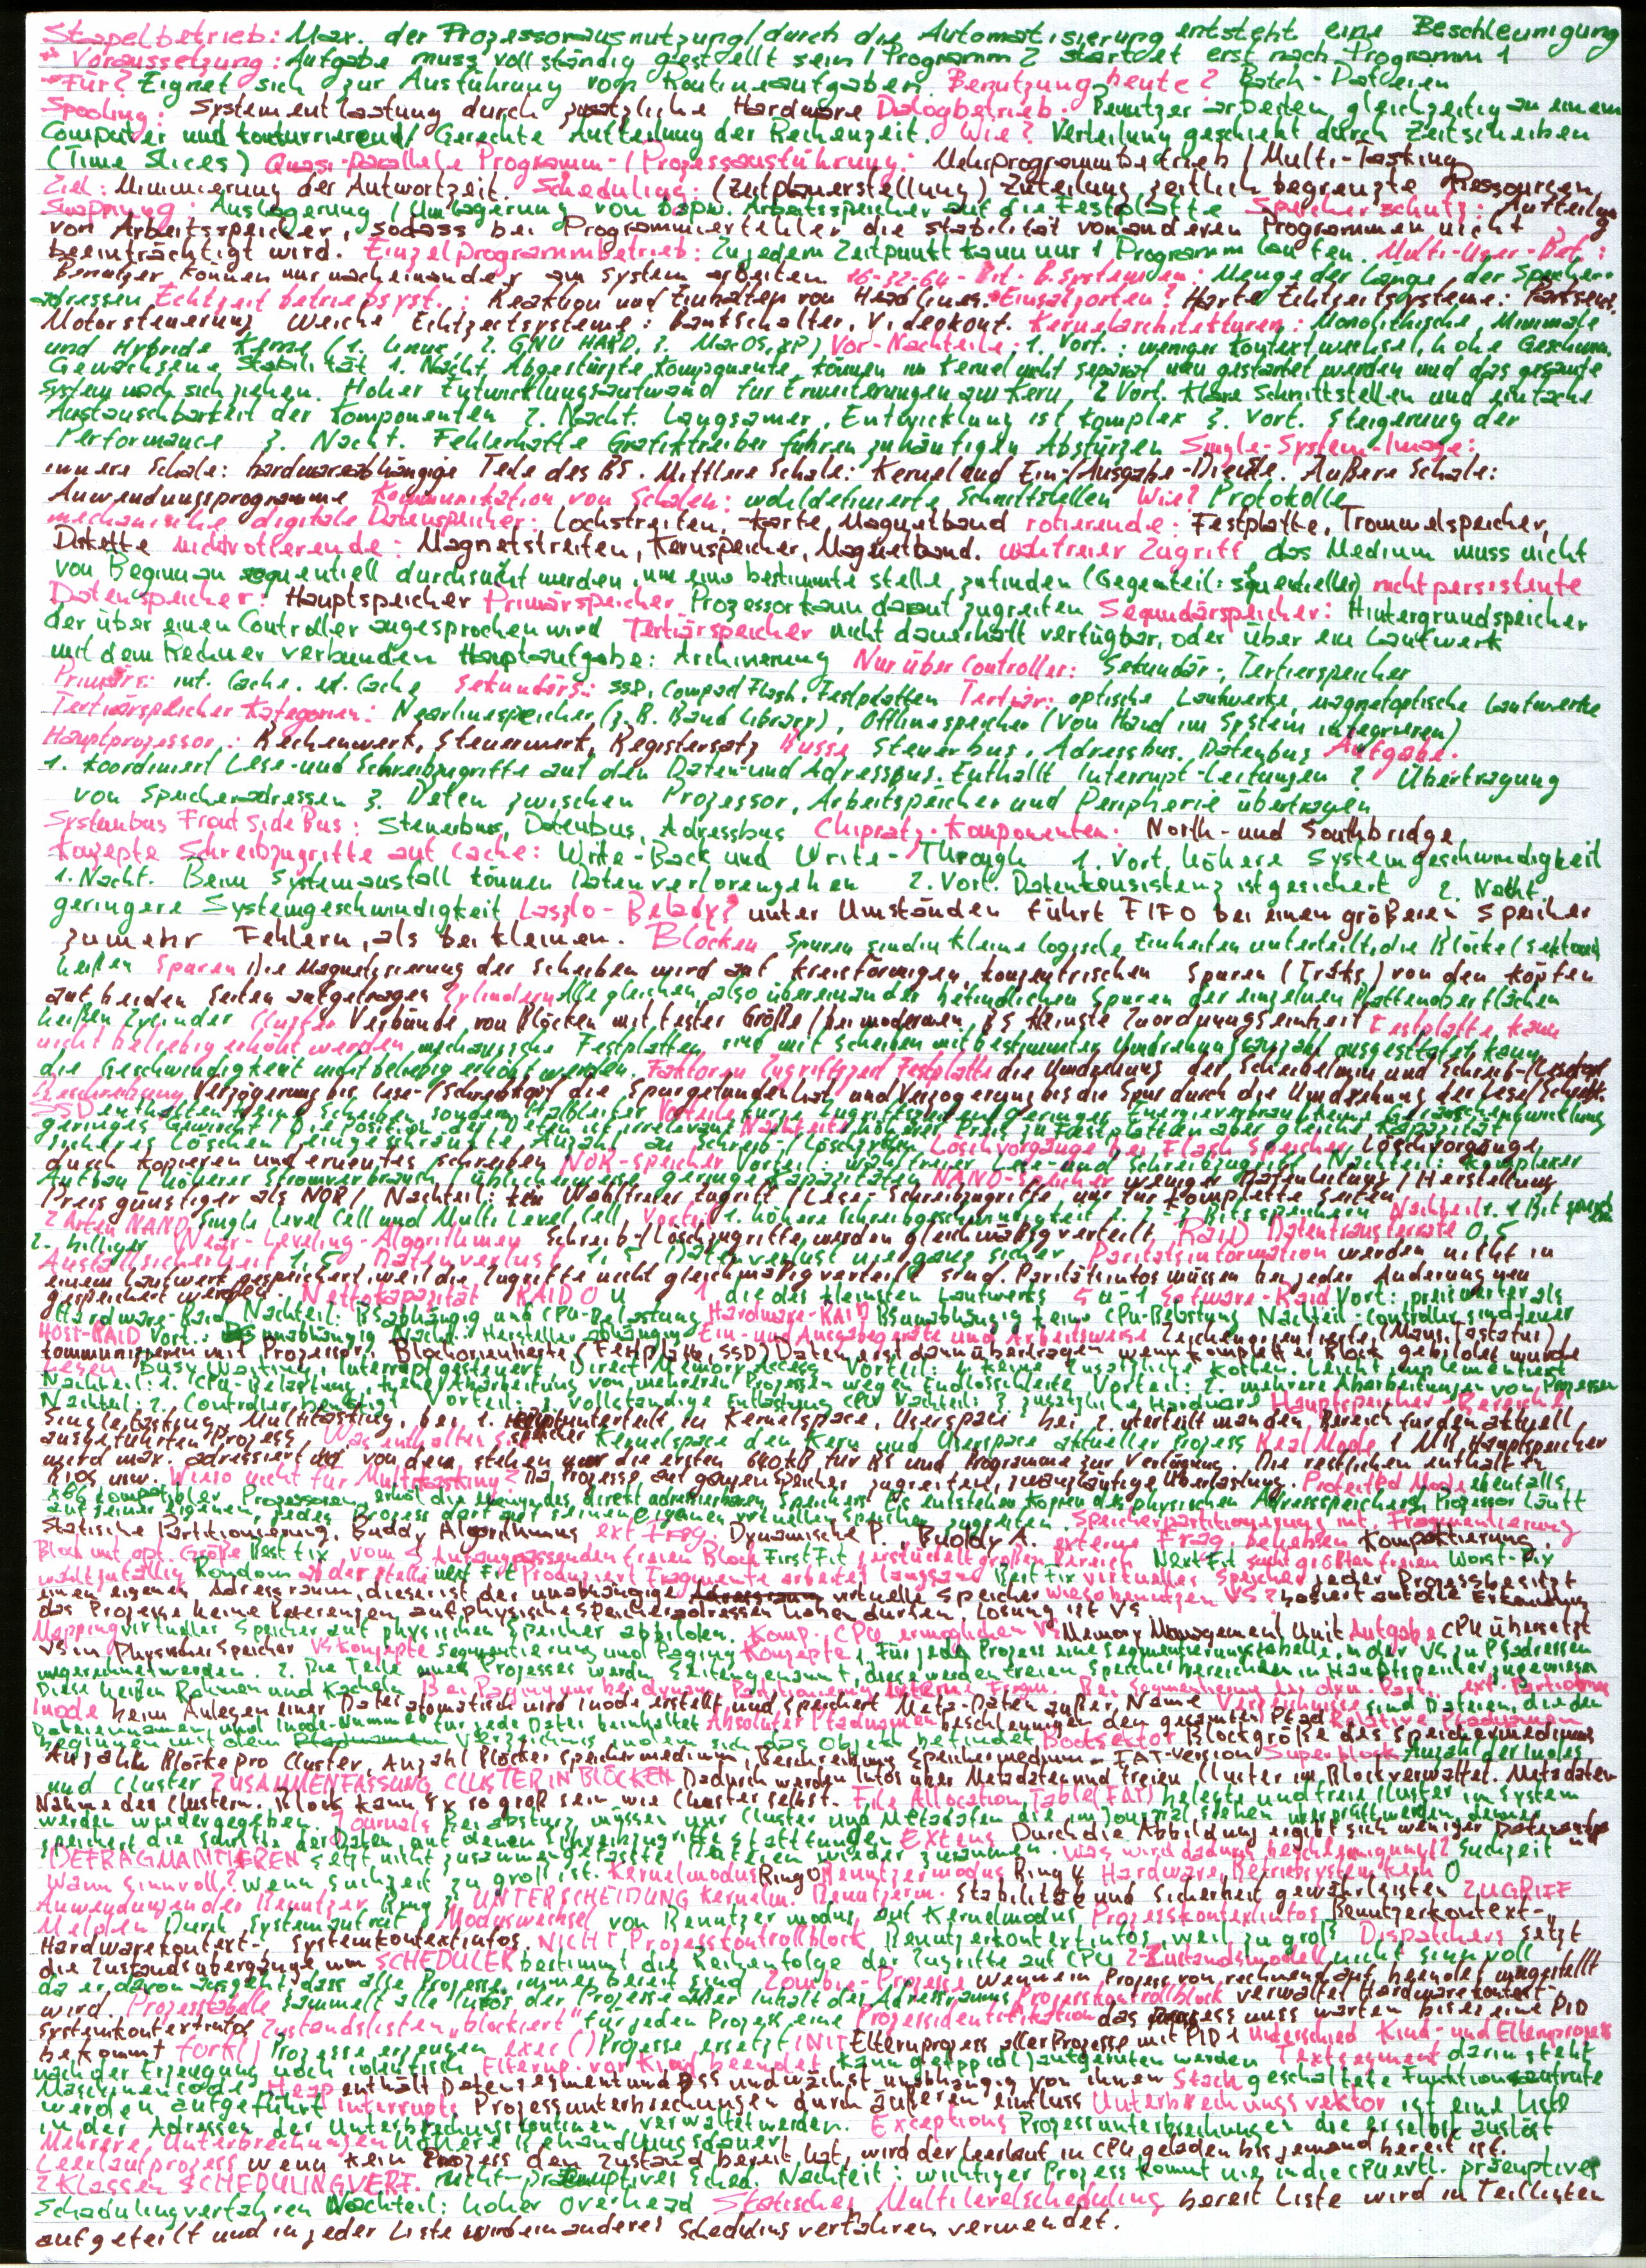 Stapelbetrieb: Max. der Prozessorausnutzung/durch die Automatisierung entsteht eine Beschleunigung
Voraussetzung: Aufgabe muss vollständig gestellt sein / Programm 2 startet erst nach Programm 1
Für? Eignet sich zur Ausführung von Routineaufgaben. Benutzung heute? Batch-Dateien
Spooling: Systementlastung durch zusätzliche Hardware Dialogbetrieb: Benutzer arbeiten gleichzeitig an einem
Computer und konkurrierend/ Gerechte Aufteilung der Rechenzeit. Wie? Verteilung geschieht durch Zeitscheiben
(Time Slices) Quasi-parallele Programm-/Prozessausführung: Mehrprogrammbetrieb / Multi-Tasking
Ziel: Minimierung der Antwortzeit. Scheduling: (Zeitplanerstellung) Zuteilung zeitlich begrenzte Ressourcen
Swapping: Auslagerung / Umlagerung von bspw. Arbeitsspeicher auf die Festplatte Speicherschutz: Aufteilung
von Arbeitsspeicher, sodass bei Programmierfehler die stabilität von anderen Programmen nicht
beeinträchtigt wird. Einzelprogrammbetrieb: Zu jedem Zeitpunkt kann nur 1 Programm laufen. Multi-User-Bet.:
Benutzer können nur nacheinander am System arbeiten. 16-32-64-Bit-B.systemen: Menge der Länge der Speicher-
adressen Echtzeitbetriebsyst.: Reaktion und Einhalten von Headlines. Einsatzorten? Harte Echtzeitsysteme:
Motorsteuerung Weiche Echtzeitsysteme: Bankschalter, Videokonf. Kernelarchitekturen: Monolithische, Minimale
und Hybride Kerne (1. Linux, 2. GNU HARD, 3. MacOS, XP) Vor-Nachteile: 1. Vort.: weniger Kontextwechsel, hohe Geschwin.
Gewachsene Stabilität 1. Nacht. Abgestürzte Komponente können im Kernel nicht separat neu gestartet werden und das gesamte
System nach sich ziehen. Hoher Entwicklungsaufwand für Erweiterungen am Kern. 2 Vort. Klare Schnittstellen und einfache
Austauschbarkeit der Komponenten 2. Nacht. Langsamer, Entwicklung ist komplex 3. Vort. Steigerung der
Performance 3. Nacht. Fehlerhafte Grafiktreiber führen zu häufigen Abstürzen Single-System-Image:
innere Schale: hardwareabhängige Teile des BS. Mittlere Schale: Kernel und Ein-/Ausgabe-Dienste. Äußere Schale:
Anwendungsprogramme Kommunikation von Schalen: wohldefinierte Schnittstellen Wie? Protokolle
mechanische digitale Datenspeicher: Lochstreifen, -karte, Magnetband rotierende: Festplatte, Trommelspeicher,
Diskette nichtrotierende: Magnetstreifen, Kernspeicher, Magnetband. wahlfreier Zugriff das Medium muss nicht
von Beginn an sequentiell durchsucht werden, um eine bestimmte stelle zu finden (Gegenteil: sequentieller) nicht persistente
Datenspeicher: Hauptspeicher Primärspeicher Prozessor kann darauf zugreifen Sequndärspeicher: Hintergrundspeicher
der über einen Controller angesprochen wird Tertiärspeicher nicht dauerhaft verfügbar, oder über ein Laufwerk
mit dem Rechner verbunden Hauptaufgabe: Archivierung Nur über Controller: Sekundär-, Tertierspeicher
Primärs: int. Cache. ext. Cache Sekundärs.: SSD, Compact Flash, Festplatten Tertiär: optische Laufwerke, magnetoptische Laufwerke
Tertiärspeicher Kategorien: Nearlinespeicher (z.B. Band Library), Offlinespeicher (Von Hand im System integrieren)
Hauptprozessor: Rechenwerk, Steuerwerk, Registersatz Busse Steuerbus, Adressbus, Datenbus Aufgabe:
1. koordiniert Lese- und Schreibzugriffe auf den Daten- und Adressbus. Enthällt Interrupt-Leitungen 2. Übertragung
von Speicheradressen 3. Daten zwischen Prozessor, Arbeitspeicher und Peripherie übertragen
Systembus Front Side Bus: Steuerbus, Datenbus, Adressbus Chipsatz-Komponenten: North- und Southbridge
Konzepte Schreibzugriffe auf Cache: Write-Back und Write-Through 1. Vort. höhere Systemgeschwindigkeit
1. Nacht. Beim Systemausfall können Daten verlorengehen 2. Vort. Datenkonsistenz ist gesichert 2. Nacht.
geringere Systemgeschwindigkeit Laszlo-Belady? unter Umständen führt FIFO bei einen größeren Speicher
zu mehr Fehlern, als bei kleinen. Blöcken Spuren sind in kleine logische Einheiten unterteilt, die Blöcke (Sektoren)
heißen Spuren Die Magnetisierung der Scheiben wird auf kreisförmigen, konzentrischen Spuren (Traks) von den Köpfen
auf beiden Seiten aufgetragen Zylindern Alle gleichen, also übereinander befindlichen Spuren der einzelnen Plattenoberflächen
heißen Zylinder Cluster Verbünde von Blöcken mit fester Größe / bei modernen BS kleinste Zuordnungseinheit Festplatte, kann
nicht beliebig erhöht werden mechanische Festplatten sind mit Scheiben mit bestimmter Umdrehungsanzahl ausgestattet kann
die Geschwindigkeit nicht beliebig erhöht werden. Faktoren Zugriffszeit Festplatte die Umdrehung der Scheiben und Schreib-/Lesekopf
Beschreibung Verzögerung bis Lese-/Schreibkopf die Spur gefunden hat und Verzögerung bis die Spur durch die Umdrehung der Lese/Schreibk.
SSD enthalten keine Scheiben sondern Halbleiter Vorteile kurze Zugriffszeiten/geringer Energieverbrauch/keine Geräuschentwicklung
geringes Gewicht / Die Position der Daten ist irrelevant Nachteile höherer Preis zu Festplatten aber gleiche Kapazität
sicheres Löschen / eingeschränkte Anzahl an Schreib-/Löschzyklen Löschvorgänge bei Flash Speicher Löschvorgänge
durch kopieren und erneutes schreiben NOR-Speicher Vorteil: wahlfreier Lese- und Schreibzugriff Nachteil: komplexer
Aufbau / höherer Stromverbrauch / üblicherweise geringe Kapazitäten NAND-Speicher weniger Datenleitung / Herstellung
Preis günstiger als NOR / Nachteil: kein Wahlfreier Zugriff / Lese-Schreibzugriffe nur für komplette Seiten
2 Arten NAND Single Level Cell und Multi Level Cell Vorteil 1. höhere Schreibgeschwindigkeit Nachteil: 1. 1 Bit
2. billiger Wear-Leveling-Algorithmen Schreib-/Löschzugriffe werden gleichmäßig verteilt RAID Datentransferrate 0,5
Ausfallsicherheit 1,5 Datenverlust 1,5 Datenverlust nie ganz sicher Paritätsinformation werden nicht in
einem Laufwerk gespeichert, weil die Zugriffe nicht gleichmäßig verteilt sind. Paritätsinfos müssen bei jeder Änderung neu
gespeichert werden. Nettokapazität RAID 0 n 1 die des kleinsten Laufwerks 5 n-1 Software-Raid Vort: preiswerter als
Hardware-Raid Nachteil: BSabhängig und CPU-Belastung Hardware-RAID BSunabhängig keine CPU-Belastung Nachteil: Controller sind teuer
HOST-RAID Vort.: BSunabhängig Nacht.: Hersteller abhängig Ein- und Ausgabegeräte und Arbeitsweise Zeichenorientierte (Maus, Tastatur)
kommunizieren mit Prozessor. Blockorientierte (Festplatte, SSD) Daten erst dann übertragen wenn kompletter Block gebildet wurde
Lesen Busy Waiting, Interrupt gesteuert, Direct Memory Access Vorteil: 1. keine zusätzliche Kosten. Leicht implementiert
Nachteil: 1. CPU-Belastung, Abarbeitung von mehreren Prozessen wegen Endlosschleife Vorteil: 2. mehrere Abarbeitungen von Prozessen
Nachteil: 2. Controller benötigt Vorteil: 3. vollständige Entlastung CPU Nachteil: 3. zusätzliche Hardware Hauptspeicher-Bereiche
Singletasking, Multitasking, bei 1. unterteilt in Kernelspace, Userspace bei 2. unterteilt man den Bereich für den aktuell
ausgeführten Prozess Was enthalten sie Kernelspace den Kern und Userspace aktueller Prozess Real Mode 1 MB Hauptspeicher
wird max. adressiert von dem stehen nur die ersten 640KB für BS und Programme zur Verfügung. Die restlichen enthalten
BIOS usw. Wieso nicht für Multitasking? Da Prozesse auf ganzen Speicher zugreifen, zwangsläufige Überlastung. Protected Mode ebenfalls
X86 kompatibler Prozessoren, erhöt die Menge des direkt adressierbaren Speichers Es entstehen Kopien des physischen Adressspeichers, Prozessor läuft
auf seiner eigenen, jedes Prozess darf auf seinen eigenen virtuellen Speicher zugreifen. Speicherpartitionierung int. Fragmentierung
Statische Partitionierung, Buddy Algorithmus ext Frag. Dynamische P., Buddy A. externe Frag. beheben Kompaktierung
Block mit opt. Größe Best fix vom Anfang passenden freien Block First Fit zerstückelt großen Bereich Next Fit sucht größten freien Worst-fix
wählt zufällig Random ab der stelle next fit Produziert Fragmente arbeitet langsam Best fix virtueller Speicher jeder Prozess besitzt
einen eigenen Adressraum, dieser ist der unabhängige virtuelle Speicher wieso benutzen VS? basiert auf die Erkenntnis
das Prozesse keine Referenzen auf physische Speicheradressen haben dürfen, Lösung ist VS
Mapping virtueller Speicher auf physischen Speicher abbilden. Komp., CPU ermöglichen VS Memory Management Unit Aufgabe CPU übersetzt
VS in Physischer Speicher VS Konzepte Segmentierung und Paging Konzepte 1. Für jede Prozess eine Segmentierungstabelle, in der VS zu PSadressen
umgerechnet werden. 2. Die Teile eines Prozesses werden Seiten genannt, diese werden freien Speicherbereichen in Hauptspeicher zugewiesen
Diese heißen Rahmen und Kacheln Bei Paging nur bei dynam. Partitionierung interne Fragm. Bei Segmentierung
Inode beim Anlegen einer Datei atomatisch wird Inode erstellt und speichert Meta-Daten außer Name Verzeichnisse sind Dateien, die den
Dateiennamen und Inode-Nummer für jede Datei beinhaltet Absoluter Pfadnamen beschleunigen den gesamten Pfad Relative Pfadnamen
beginnen mit dem Verzeichnis indem sich das Objekt befindet Bootsektor Blockgröße des Speichermediums
Anzahl Blöcke pro Cluster, Anzahl Blöcke Speichermedium, Beschreibung Speichermedium, FAT-Version Superblock Anzahl der Inodes
und Cluster ZUSAMMENFASSUNG CLUSTER IN BLÖCKEN Dadurch werden Infos über Metadaten und freien Cluster im Block verwaltet. Metadaten
Nahme den Clustern. Block kann 8x so groß sein wie Cluster selbst. File Allocation Table (FAT) belegte und freie Cluster im System
werden wiedergegeben. Journals Bei absturz müssen nur Cluster und Metadaten die im Journal stehen überprüft werden, denner
speichert die Schritte der Daten auf denen Schreibzugriffe stattfanden Extens Durch die Abbildung ergibt sich weniger
DEFRAGMANTIEREN setzt nicht zusammengefasste Dateien wieder zusammen. Was wird dadurch beschleunigt? Suchzeit
Wann sinnvoll? wenn Suchzeit zu groß ist. Kernelmodus Ring 0 Benutzermodus Ring 4 Hardware, Betriebsystemkern 0
Anwendungen der Benutzer Ring 3 UNTERSCHEIDUNG Kernelm. Benutzerm. Stabilität und Sicherheit gewährleisten ZUGRIFF
Helpen Durch Systemaufruf / Moduswechsel von Benutzer modus auf Kernelmodus Prozesskontextinfos Benutzerkontext-,
Hardwarekontext-, Systemkontextinfos. NICHT Prozesskontrollblock Benutzerkontextinfos, weil zu groß Dispatchers setzt
die Zustandsübergänge um SCHEDULER bestimmt die Reihenfolge der Zugriffe auf CPU 2-Zustandsmodell nicht sinnvoll
da er davon ausgeht, dass alle Prozesse immer bereit sind Zombie-Prozesse Wenn ein Prozess von rechnend auf beendet umgestellt
wird. Prozesstabelle sammelt alle Infos der Prozesse außer Inhalt des Adressraums Prozesskontrollblock verwaltet Hardwarekontext-
Systemkontextinfos Zustandslisten „blockiert" für jeden Prozess eine Prozessidentifikation das muss warten bis er eine PID
bekommt fork() Prozesse erzeugen exec() Prozesse ersetzt INIT Elternprozess aller Prozesse mit PID 1 Unterschied Kind- und Elternprozess
nach der Erzeugung noch identisch Elternp. vor Kind beendet kann getppid() aufgerufen werden Textsegment darin steht
Maschinencode Heap enthält Datensegment und BSS und wächst unabhängig von ihnen Stack geschaltete Funktionsaufrufe
werden aufgeführt Interrupts Prozessunterbrechungen durch äußeren einfluss Unterbrechungsvektor ist eine Liste
in der Adressen der Unterbrechungsroutinen verwaltet werden. Exceptions Prozessunterbrechungen die er selbst auslöst
Mehrere Unterbrechungen höhere Behandlungsdauer
Leerlaufprozess wenn kein Prozess den Zustand bereit hat, wird der Leerlauf in CPU geladen bis jemand bereit ist.
2 Klassen SCHEDULINGVERF. nicht-präemptives Sched. Nachteil: wichtiger Prozess kommt nie in die CPU evtl. präemptives
Schedulingverfahren Nachteil: hoher Overhead Statisches Multilevelscheduling bereit Liste wird in Teillisten
aufgeteilt und in jeder Liste wird ein anderes Schedulingsverfahren verwendet.